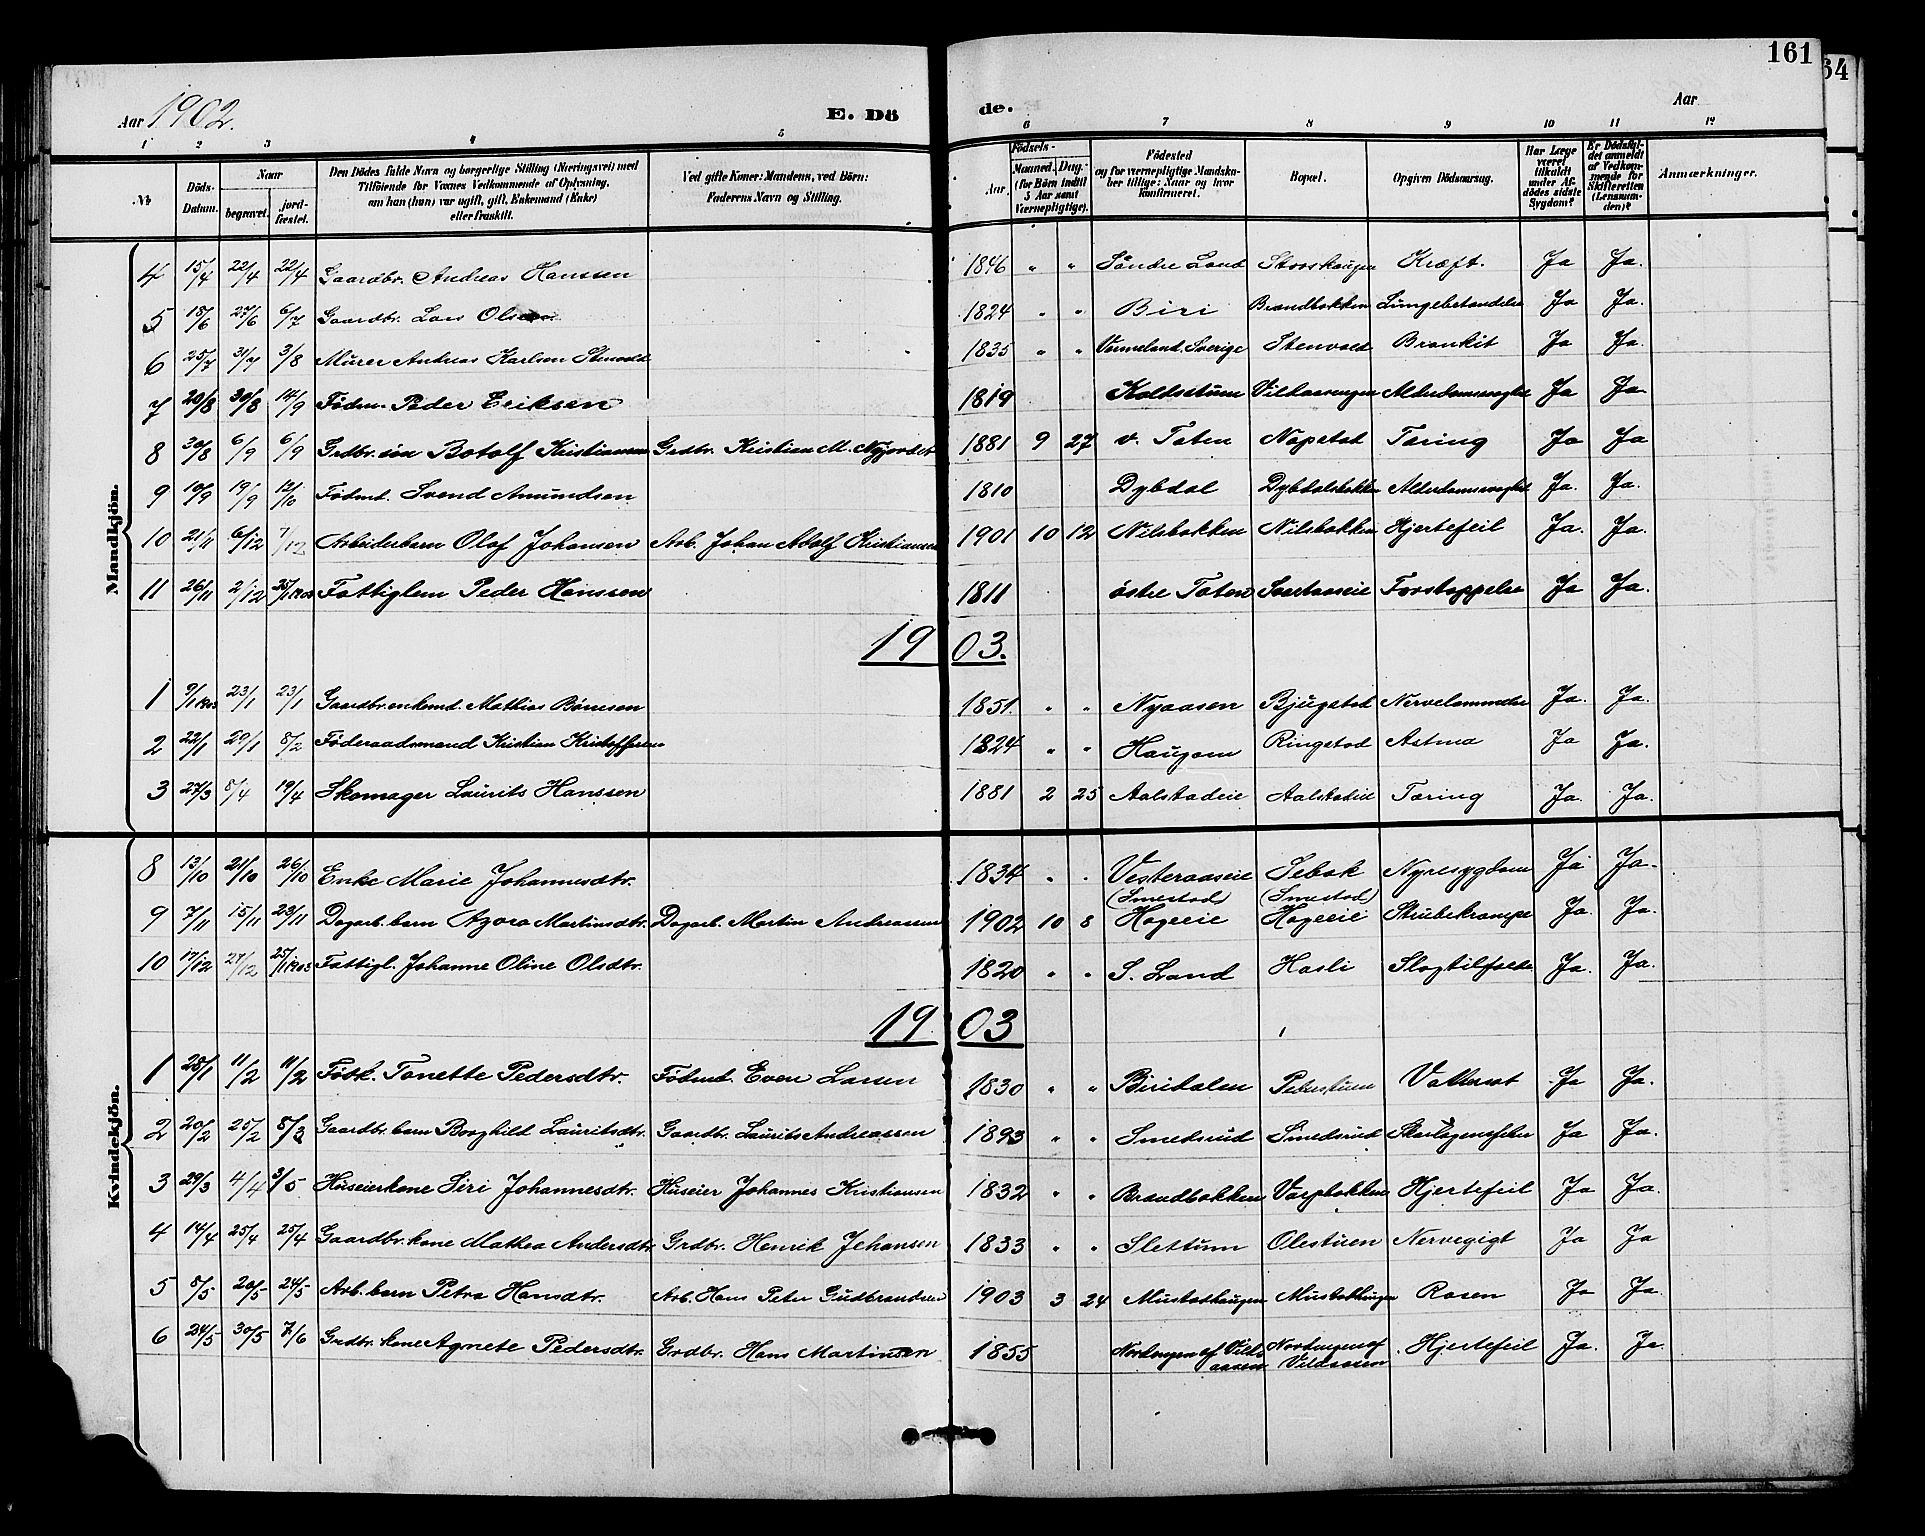 161
64
Aar 1902.
E. Dö de.
Aar
1 2 3 4 5 6 7 8 9 10 11 12
No
Döds-Datum.
Naar begravet. jordfæstet.
Den Dödes fulde Navn og borgerlige Stilling (Næringsvei) med Tilföiende for Voxnes Vedkommende af Oplysning, om han (hun) var ugift, gift, Enkemand (Enke) eller fraskilt.
Ved gifte Koner: Mandens, ved Börn: Faderens Navn og Stilling.
Födsels-
Aar. Maaned. Dag.
(for Börn indtil 5 Aar samt Værnepligtige).
Födested og for værnepligtige Mandskaber tillige: Naar og hvor konfirmeret.
Bopæl.
Opgiven Dödsaarsag.
Har Læge været tilkaldt under Afdödes sidste Sygdom?
Er Dödsfaldet anmeldt af Vedkommende for Skifteretten (Lensmanden)?
Anmærkninger.
Mandkjön.
4 15/4 22/4 22/4 Gaardbr. Andreas Hanssen 1846 " " Söndre Land Storshaugen Kræft. Ja Ja.
5 18/6 27/6 6/7 Gaardbr. Lars Olsen 1824 " " Biri Brandbakken Lungebetændelse Ja Ja.
6 25/7 31/7 3/8 Murer Andreas Karlsen Stenvold 1835 " " Vermeland, Sverige Stenvold Bronkit Ja Ja.
7 20/8 30/8 14/9 Födm. Peder Eriksen 1819 Koldsstuen Vildaasengen Alderdomssvaghed Ja Ja
8 30/8 6/9 6/9 Grdbr. sön Botolf Kristiansen Grdbr. Kristian M. Nyjordet 1881 9 27 v. Toten Nøpstad Tæring Ja Ja
9 10/9 19/9 12/10 Födmd. Svend Amundsen 1810 Dybdal Dybdalsbakken Alderdomssvaghed Ja. Ja.
10 21/11 6/12 7/12 Arbeiderbarn Olaf Johansen Arb. Johan Adolf Kristiansen 1901 10 12 Nilsbakken Nilsbakken Hjertefeil Ja. Ja.
11 26/11 2/12 25/1 1903 Fattiglem Peder Hanssen 1811 östre Toten Svartaaseie Forstoppelse Ja Ja.
1903.
1 9/1 1903 23/1 23/1 Gaardbr. enkemd. Mathias Börresen 1851. " " Nyaasen Bjugstad Nervelammelse Ja. Ja.
2 22/1 29/1 8/2 Föderaadsmand Kristian Kristoffersen 1824 " " Haugom Ringstad Astma Ja Ja.
3 27/3 8/4 19/4 Skomager Laurits Hanssen 1881 2 25 Aalstadeie Aalstadeie Tæring Ja. Ja.
Kvindekjön.
8 13/10 21/10 26/10 Enke Marie Johannesdtr. 1834 " " Vesteraaseie Sebak Nyresygdom Ja Ja.
9 7/11 15/11 23/11 Dagarb. barn Agora Martinsdtr. Dagarb. Martin Andreassen 1902 10 8 (Smestad) Hageeie (Smestad) Hageeie Strubekrampe Ja. Ja.
10 17/12 27/12 25/1 1903 Fattigl. Johanne Oline Olsdtr. 1820 " " S. Land Hasli Slagtilfælde Ja. Ja.
1903
1 28/1 11/2 11/2 Födk. Tonette Pedersdtr. Födmd. Even Larsen 1830 " " Biridalen Peterstuen Vattersot Ja Ja.
2 20/2 25/2 8/3 Gaardbr. barn Borghild Lauritsdtr. Gaardbr. Laurits Andreassen 1893 " " Smedsrud Smedsrud Skarlagensfeber Ja Ja.
3 29/3 4/4 3/5 Huseierkone Siri Johannesdtr. Huseier Johannes Kristiansen 1832 " " Brandbakken Varpbakken Hjertefeil Ja Ja.
4 14/4 25/4 25/4 Gaardbr. kone Mathea Andersdtr. Grdbr. Henrik Johansen 1833 " " Slettum Olestuen Nervegigt Ja Ja
5 8/5 20/5 24/5 Arb. barn Petra Hansdtr. Arb. Hans Peter Gudbrandsen 1903 3 24 Mustadhaugen Mustadhaugen Rosen Ja Ja.
6 24/5 30/5 7/6 Grdbr. kone Agnete Pedersdtr. Grdbr. Hans Martinsen 1855 Nordengen af Vildaasen Nordengen af Vildaasen Hjertefeil Ja. Ja.